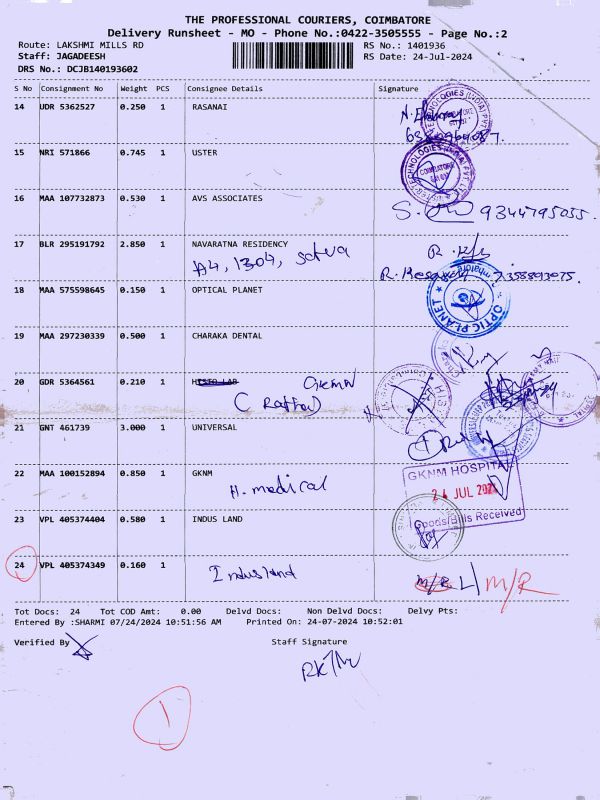 THE PROFESSIONAL COURIERS, COIMBATORE
Delivery Runsheet - MO - Phone No.:0422-3505555 - Page No.:2
Route: LAKSHMI MILLS RD RS No.: 1401936
Staff: JAGADEESH RS Date: 24-Jul-2024
DRS No.: DCJB140193602
S No Consignment No Weight PCS Consignee Details Signature
14 UDR 5362527 0.250 1 RASANAI
15 NRI 571866 0.745 1 USTER
COIMBATORE
16 MAA 107732873 0.530 1 AVS ASSOCIATES
9344795035.
17 BLR 295191792 2.850 1 NAVARATNA RESIDENCY
A4, 1304,
18 MAA 575598645 0.150 1 OPTICAL PLANET
OPTIC PLANET
19 MAA 297230339 0.500 1 CHARAKA DENTAL
20 GDR 5364561 0.210 1 HISTO LAB
21 GNT 461739 3.000 1 UNIVERSAL
22 MAA 100152894 0.850 1 GKNM
H. medical
GKNM HOSPITAL
24 JUL 2024
Goods/Bills Received
23 VPL 405374404 0.580 1 INDUS LAND
24 VPL 405374349 0.160 1
Indusland
M/R L/ M/R
Tot Docs: 24 Tot COD Amt: 0.00 Delvd Docs: Non Delvd Docs: Delvy Pts:
Entered By :SHARMI 07/24/2024 10:51:56 AM Printed On: 24-07-2024 10:52:01
Verified By Staff Signature
1